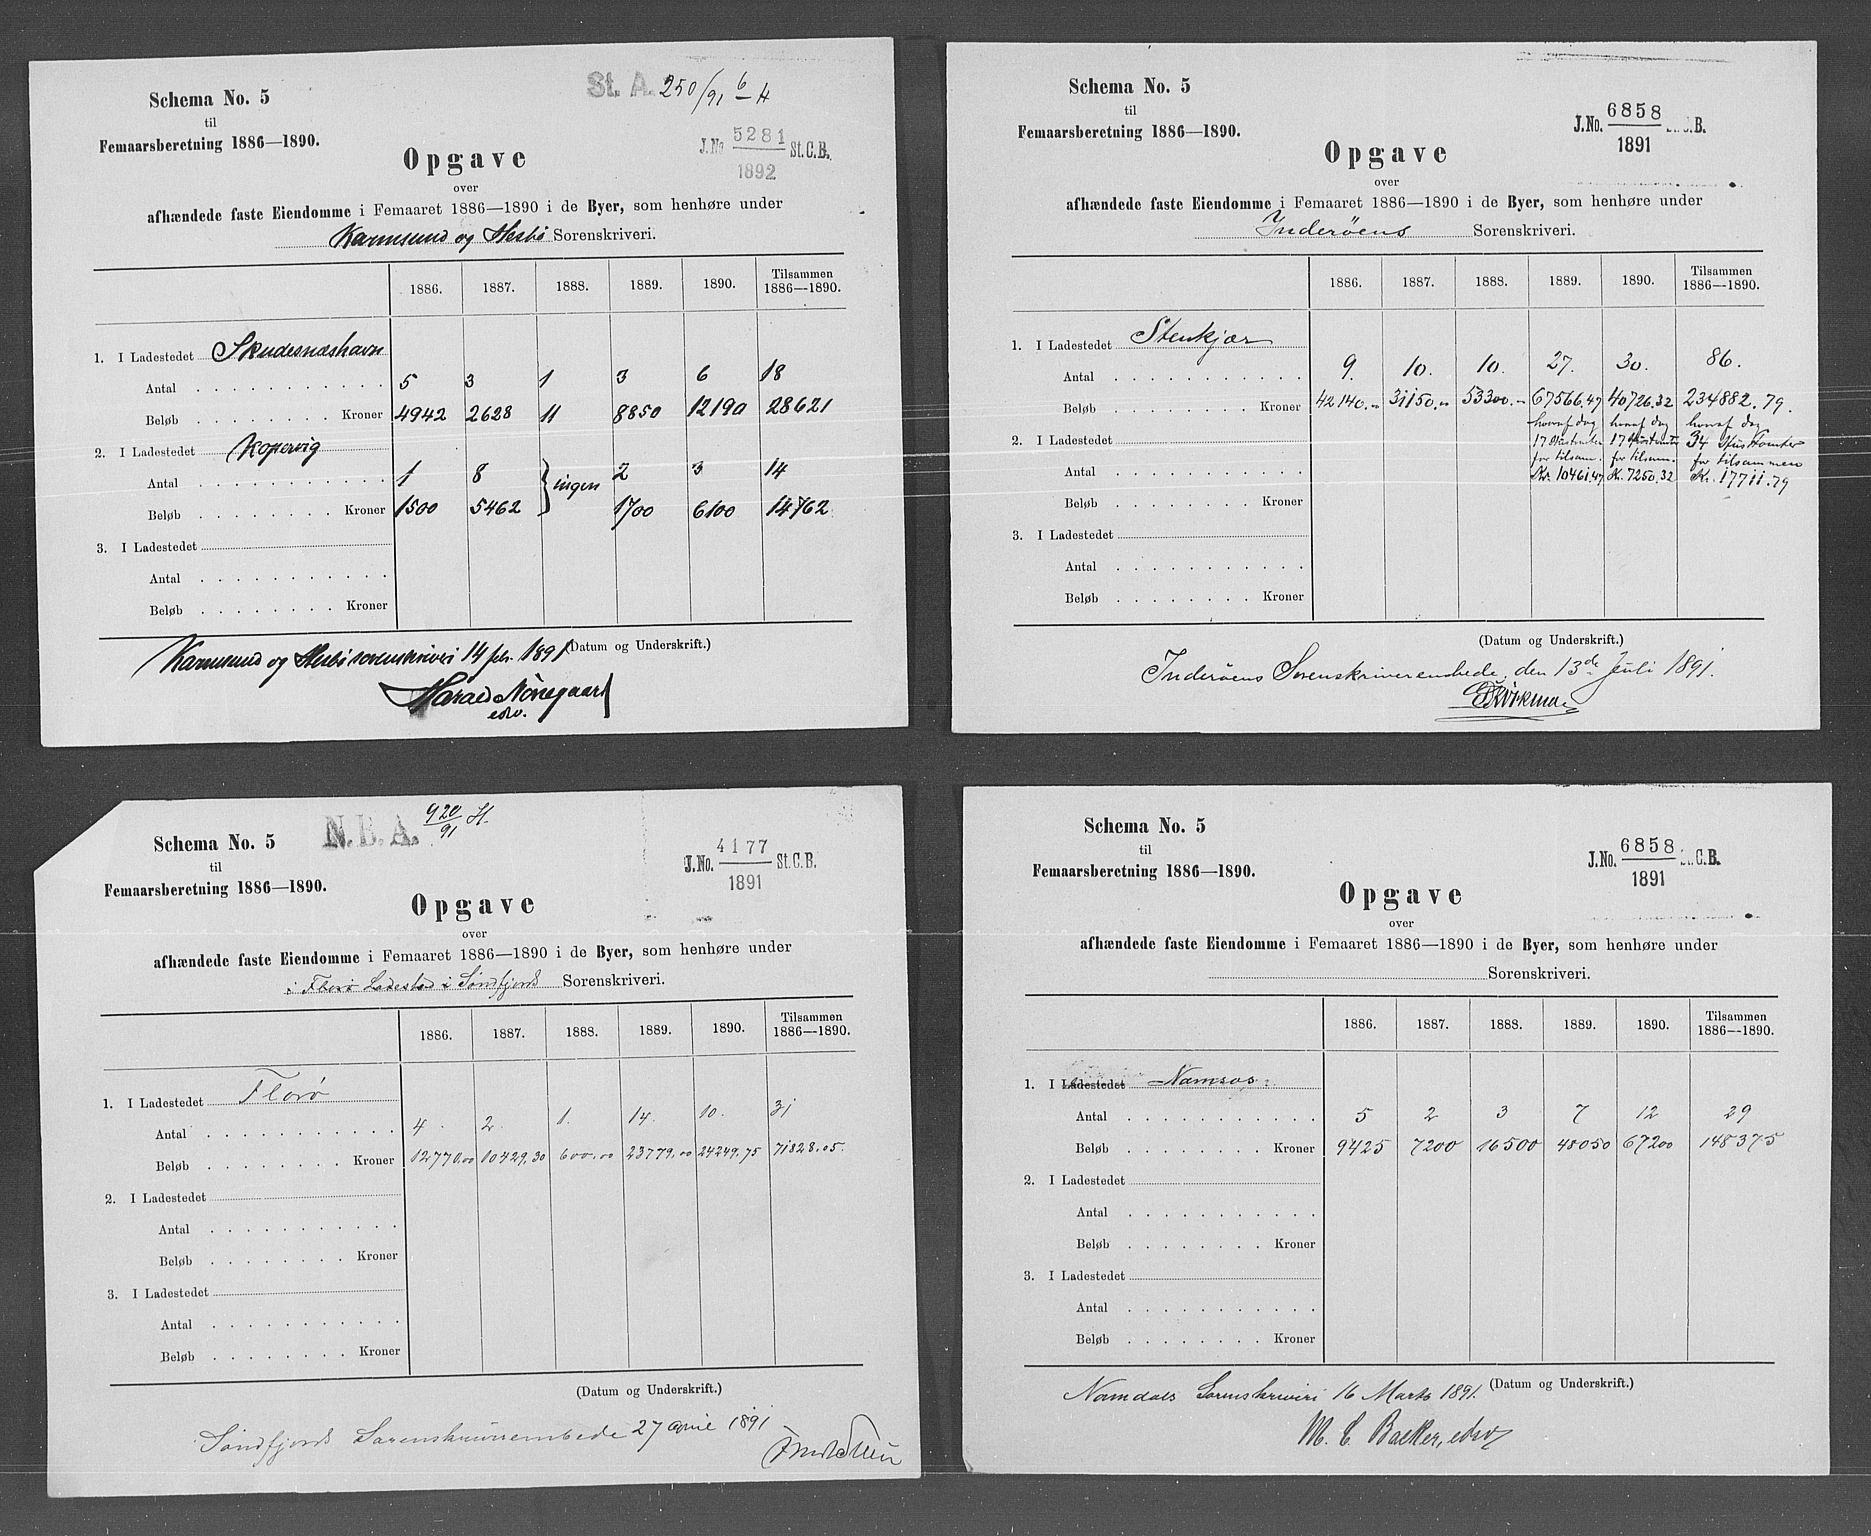 Schema No. 5
til
Femaarsberetning 1886—1890.
St. A. 250/91 6/4
J.No 5281 St.C.B.
1892
Opgave
over
afhændede faste Eiendomme i Femaaret 1886—1890 i de Byer, som henhøre under
Karmsund og Hesbø Sorenskriveri.
1886. 1887. 1888. 1889. 1890. Tilsammen 1886—1890.
1. I Ladestedet Skudesnæshavn
Antal 5 3 1 3 6 18
Beløb Kroner 4942 2628 11 8850 12190 28621
2. I Ladestedet Kopervig
Antal 1 8 ingen 2 3 14
Beløb Kroner 1500 5462 1700 6100 14762
3. I Ladestedet
Antal
Beløb Kroner
(Datum og Underskrift.)
Karmsund og Hesbø sorenskriveri 14 febr. 1891
Harald Nørregaard
edv.
Schema No. 5
til
Femaarsberetning 1886—1890.
J.No. 6858 St.C.B.
1891
Opgave
over
afhændede faste Eiendomme i Femaaret 1886—1890 i de Byer, som henhøre under
Inderøens Sorenskriveri.
1886. 1887. 1888. 1889. 1890. Tilsammen 1886—1890.
1. I Ladestedet Stenkjær
Antal 9. 10. 10. 27. 30. 86.
Beløb Kroner 42140.– 31150.– 53300.– 67566.47 40726.32 234882.79.
hvoraf dog hvoraf dog hvoraf dog
2. I Ladestedet 17 Hustomter 17 Hustomter 34 Hustomter
for tilsam. for tilsam. for tilsammen
Antal Kr. 10461.47 Kr. 7250.32 Kr. 17711.79
Beløb Kroner
3. I Ladestedet
Antal
Beløb Kroner
(Datum og Underskrift.)
Inderøens Sorenskriverembede, den 13de Juli 1891.
Schema No. 5
til
Femaarsberetning 1886—1890.
N.B.A. 920/91 H.
J.No. 4177 St.C.B.
1891
Opgave
over
afhændede faste Eiendomme i Femaaret 1886—1890 i de Byer, som henhøre under
i Florø Ladested i Søndfjords Sorenskriveri.
1886. 1887. 1888. 1889. 1890. Tilsammen 1886—1890.
1. I Ladestedet Florø
Antal 4. 2. 1. 14. 10. 31
Beløb Kroner 12770.00 10429.30 600.00 23779.00 24249.75 71828.05.
2. I Ladestedet
Antal
Beløb Kroner
3. I Ladestedet
Antal
Beløb Kroner
(Datum og Underskrift.)
Søndfjords Sorenskriverembede 27 April 1891
Schema No. 5
til
Femaarsberetning 1886—1890.
J.No. 6858 St.C.B.
1891
Opgave
over
afhændede faste Eiendomme i Femaaret 1886—1890 i de Byer, som henhøre under
Sorenskriveri.
1886. 1887. 1888. 1889. 1890. Tilsammen 1886—1890.
1. I Ladestedet Namsos.
Antal 5 2 3 7 12 29
Beløb Kroner 9425 7200 16500 48050 67200 148375
2. I Ladestedet
Antal
Beløb Kroner
3. I Ladestedet
Antal
Beløb Kroner
(Datum og Underskrift.)
Namdals Sorenskriveri 16 Marts 1891.